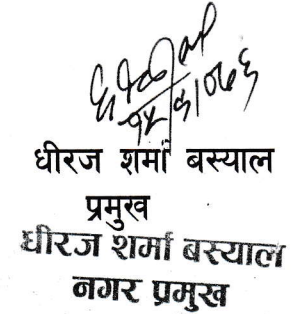 धीरज शर्मा बस्याल
प्रमुख
धीरज शर्मा बस्याल
नगर प्रमुख